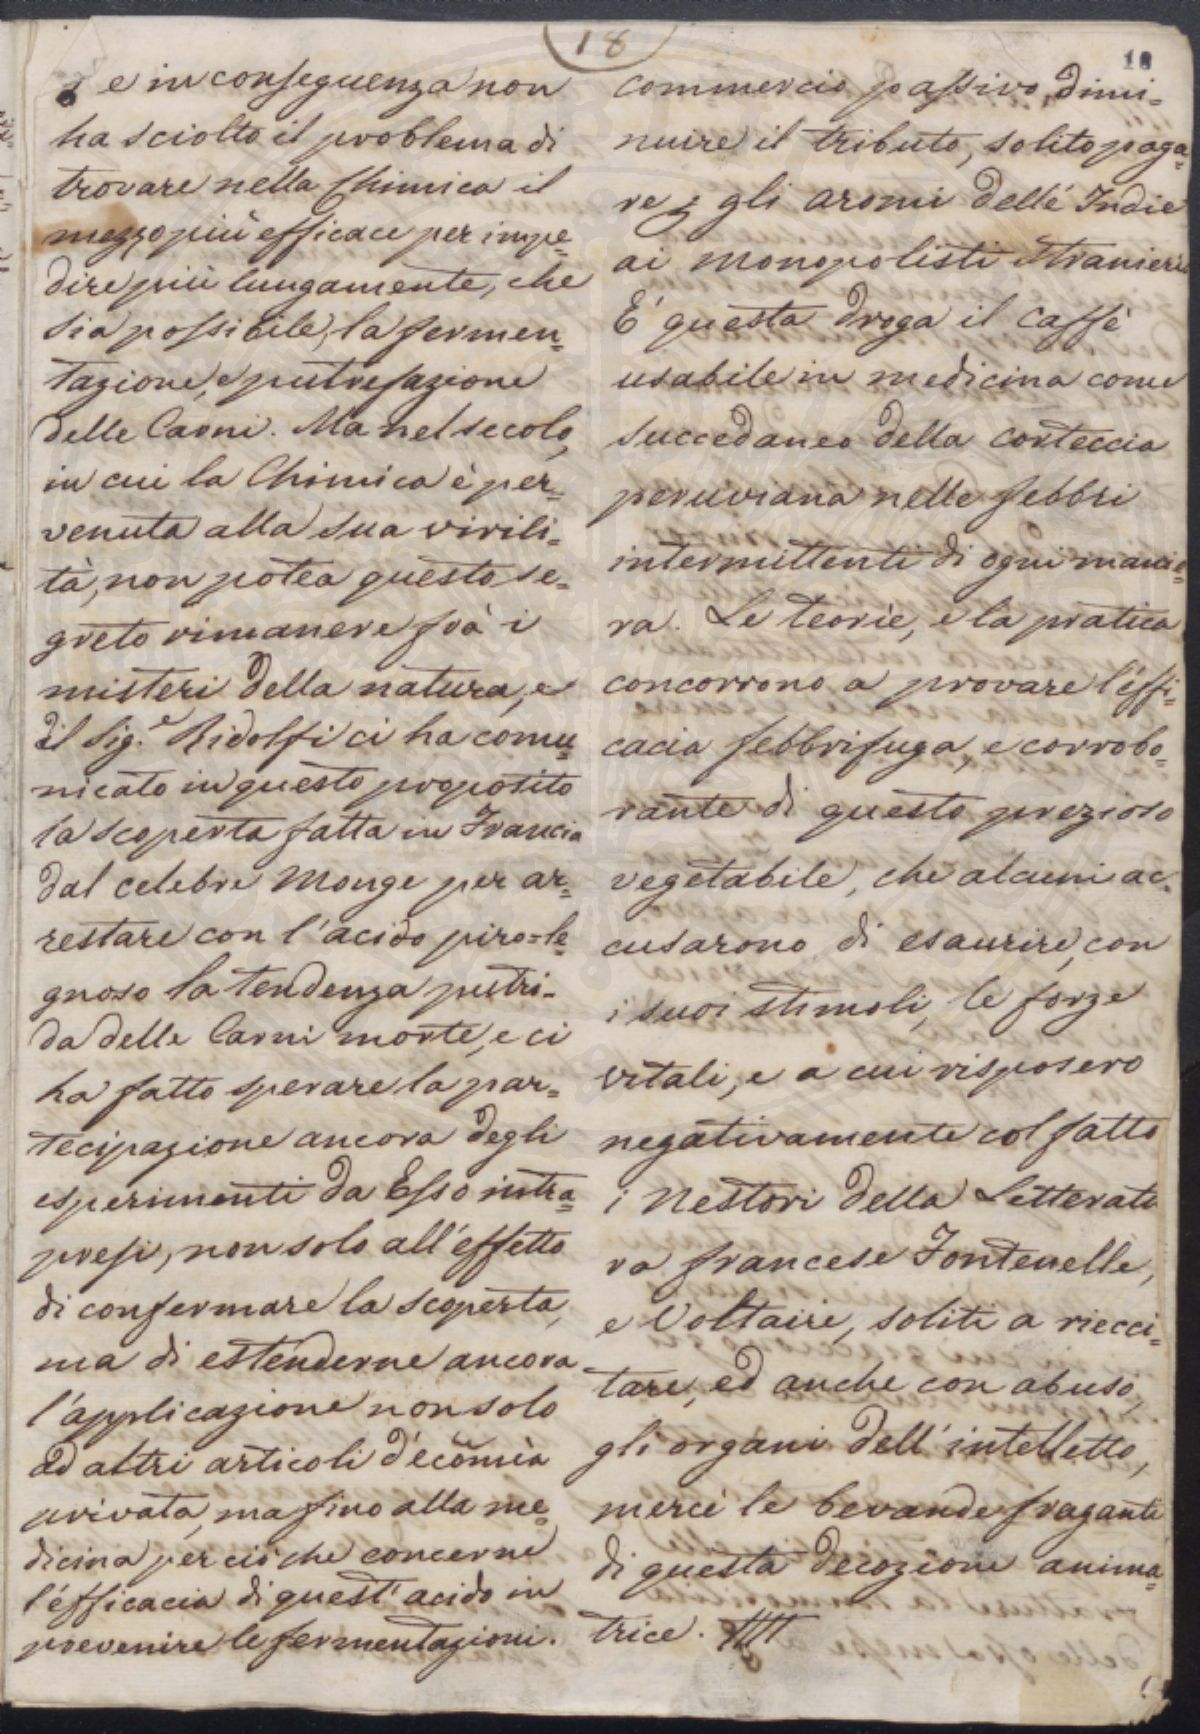 18
18
e in conseguenza non
ha sciolto il problema di
trovare nella Chimica il
mezzo più efficace per impe=
dire più lungamente, che
sia possibile, la fermen=
tazione, e putrefazione
delle Carni. Ma nel secolo,
in cui la Chimica è per=
venuta alla sua virili=
tà, non potea questo se=
greto rimanere frà i
misteri della natura, e
il Sig.e Ridolfi ci ha comu=
nicato in questo proposito
la scoperta fatta in Francia
dal celebre Monge per ar=
restare con l'acido piro=le=
gnoso la tendenza putri=
da delle Carni morte, e ci
ha fatto sperare la par=
tecipazione ancora degli
esperimenti da Esso intra=
presi, non solo all'effetto
di confermare la scoperta,
ma di estenderne ancora
l'applicazione non solo
ad altri articoli d'ecōmia
privata, ma fino alla me=
dicina per ciò che concerne
l'efficacia di quest'acido in
prevenire le fermentazioni.
commercio passivo, dimi=
nuire il tributo, solito paga=
re gli aromi delle Indie
ai monopolisti stranieri
E' questa droga il caffè
usabile in medicina come
succedaneo della corteccia
peruviana nelle febbri
intermittenti di ogni manie=
ra. Le teorie, e la pratica
concorrono a provare l'effi=
cacia febbrifuga, e corrobo=
rante di questo prezioso
vegetabile, che alcuni ac=
cusarono di esaurire, con
i suoi stimoli, le forze
vitali, e a cui risposero
negativamente col fatto
i Nestori della Letteratu
ra francese Fontenelle,
e Voltaire, soliti a riecci=
tare, ed anche con abuso,
gli organi dell'intelletto,
mercè le bevande fraganti
di questa decozione anima=
trice.